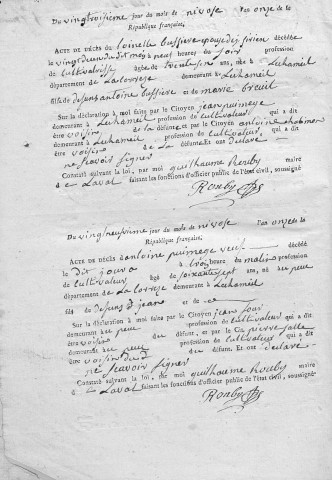 Du vingtroisieme jour du mois de nivose l'an onze de la
République française,
ACTE DE DÉCÈS de toinette Bussiere épouse de décédée
le vingt deux du dit mois à neuf heures du soir profession
de cultivatrisse âgée de trente six ans, née à Luhameil
département de La Correze demeurant à Luhameil
fille de defunt antoine Bussiere et de marie Breuil
Sur la déclaration à moi faite par le Citoyen jean puimege
demeurant à Luhameil profession de cultivateur qui a dit
être voisin de la défunte et par le Citoyen antoine
demeurant à Luhameil profession de cultivateur, qui a dit
être voisin de la Défunte. Et ont Déclaré
ne scavoir signer
Constaté suivant la loi, par moi guilhaume Rouby maire
de Laval faisant les fonctions d'officier public de l'état civil, soussigné
Rouby
Du vingtneuvieme jour du mois de nivose l'an onze de la
République française,
ACTE DE DÉCÈS d'antoine puimege veuf décédé
le dit jour à trois heures du matin profession
de cultivateur âgé de soixante sept ans, né au peuc
département de La Correze demeurant à Luhameil
fils de defunt jean et de
Sur la déclaration à moi faite par le Citoyen jean
demeurant au peuc profession de cultivateur qui a dit
être voisin du défunt, et par le Cn pierre
demeurant au peuc profession de cultivateur qui a dit
être voisin du défunt. Et ont Déclaré
ne scavoir signer
Constaté suivant la loi, par moi guilhaume Rouby maire
de Laval faisant les fonctions d'officier public de l'état civil, soussigné
Rouby